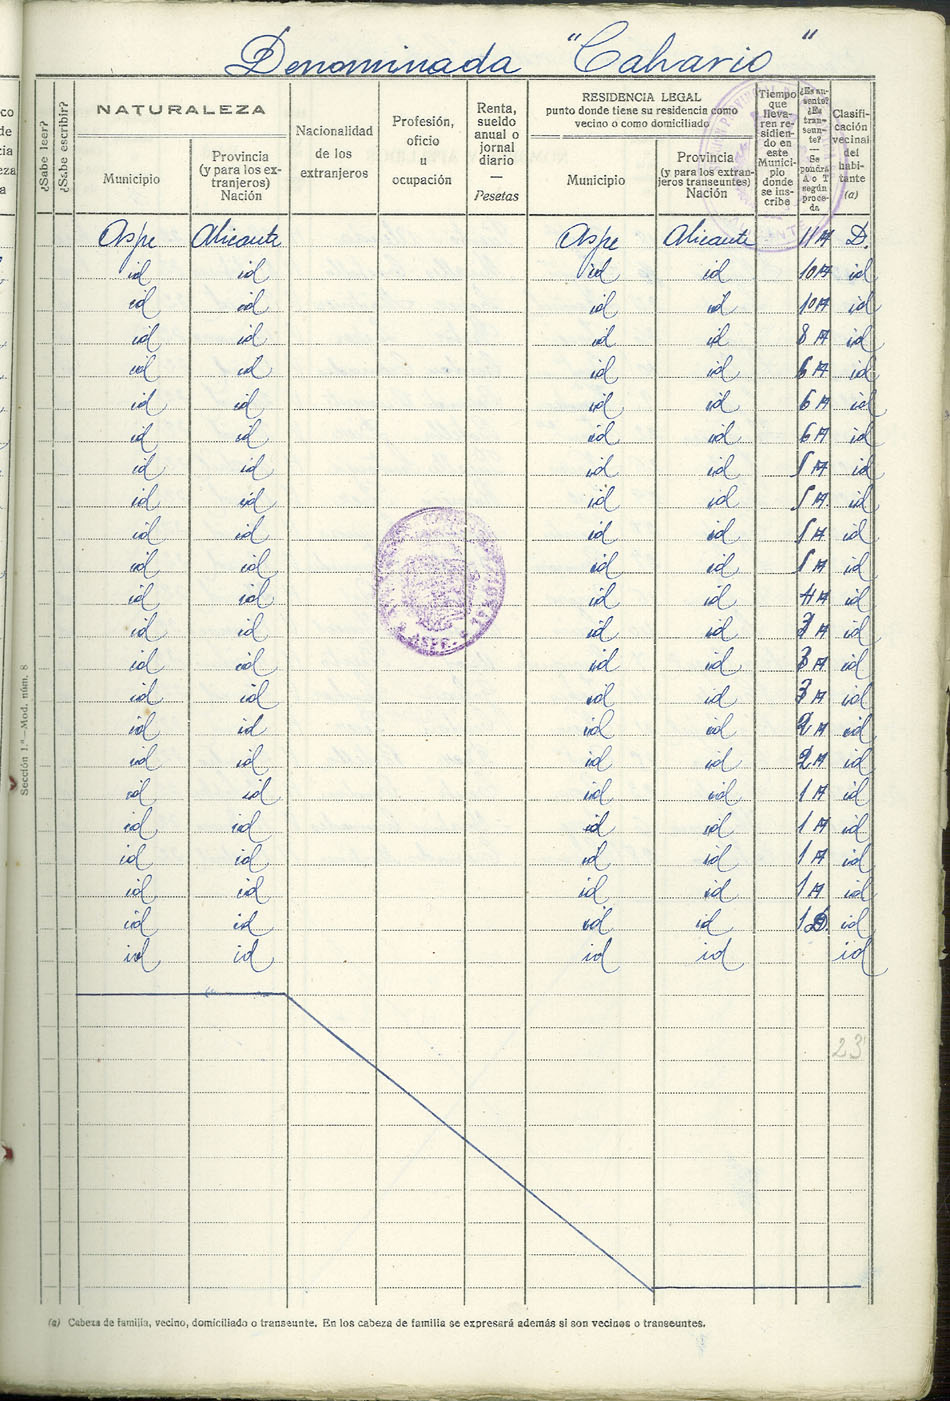 Denominada "Calvario"
¿Sabe leer?
¿Sabe escribir?
NATURALEZA
Municipio
Provincia
(y para los ex-
tranjeros)
Nación
Nacionalidad
de los
extranjeros
Profesión,
oficio
u
ocupación
Renta,
sueldo
anual o
jornal
diario
—
Pesetas
RESIDENCIA LEGAL
punto donde tiene su residencia como
vecino o como domiciliado
Municipio
Provincia
(y para los extran-
jeros transeuntes)
Nación
Tiempo
que
lleva-
ren re-
sidien-
do en
este
Munici-
pio
donde
se ins-
cribe
¿Es au-
sente?
¿Es
tran-
seun-
te?
—
Se
pondrá
A o T
según
proce-
da
Clasifi-
cación
vecinal
del
habi-
tante
(a)
Aspe Alicante Aspe Alicante 11 A D.
id id id id 10 A id
id id id id 10 A id
id id id id 8 A id
id id id id 6 A id
id id id id 6 A id
id id id id 6 A id
id id id id 5 A id
id id id id 5 A. id
id id id id 5 A. id
id id id id 5 A id
id id id id 4 A id
id id id id 3 A id
id id id id 3 A id
id id id id 3 A id
id id id id 2 A id
id id id id 2 A id
id id id id 1 A id
id id id id 1 A id
id id id id 1 A id
id id id id 1 A id
id id id id 1 D. id
id id id id id
23
ASPE
Sección 1.ª—Mod. núm. 8
(a) Cabeza de familia, vecino, domiciliado o transeunte. En los cabeza de familia se expresará además si son vecinos o transeuntes.